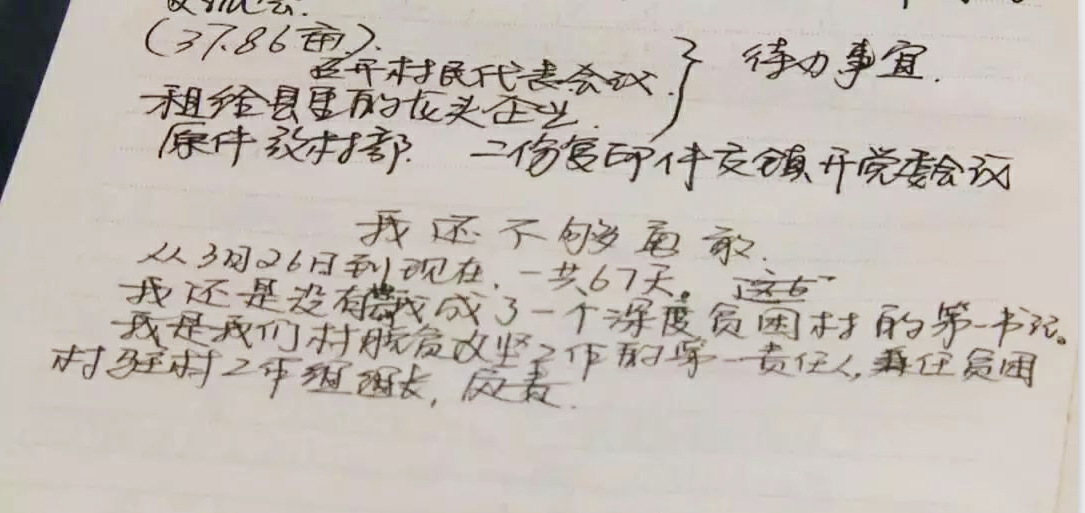 (37.86亩).
召开村民代表会议. } 待办事宜.
租给县里的龙头企业.
原件放村部. 二份复印件交镇开党委会议
我还不够勇敢.
从3月26日到现在,一共67天。这67
我还是没有 成了一个深度贫困村的第一书记。
我是我们村脱贫攻坚工作的第一责任人,兼任贫困
村驻村工作组组长,应责.